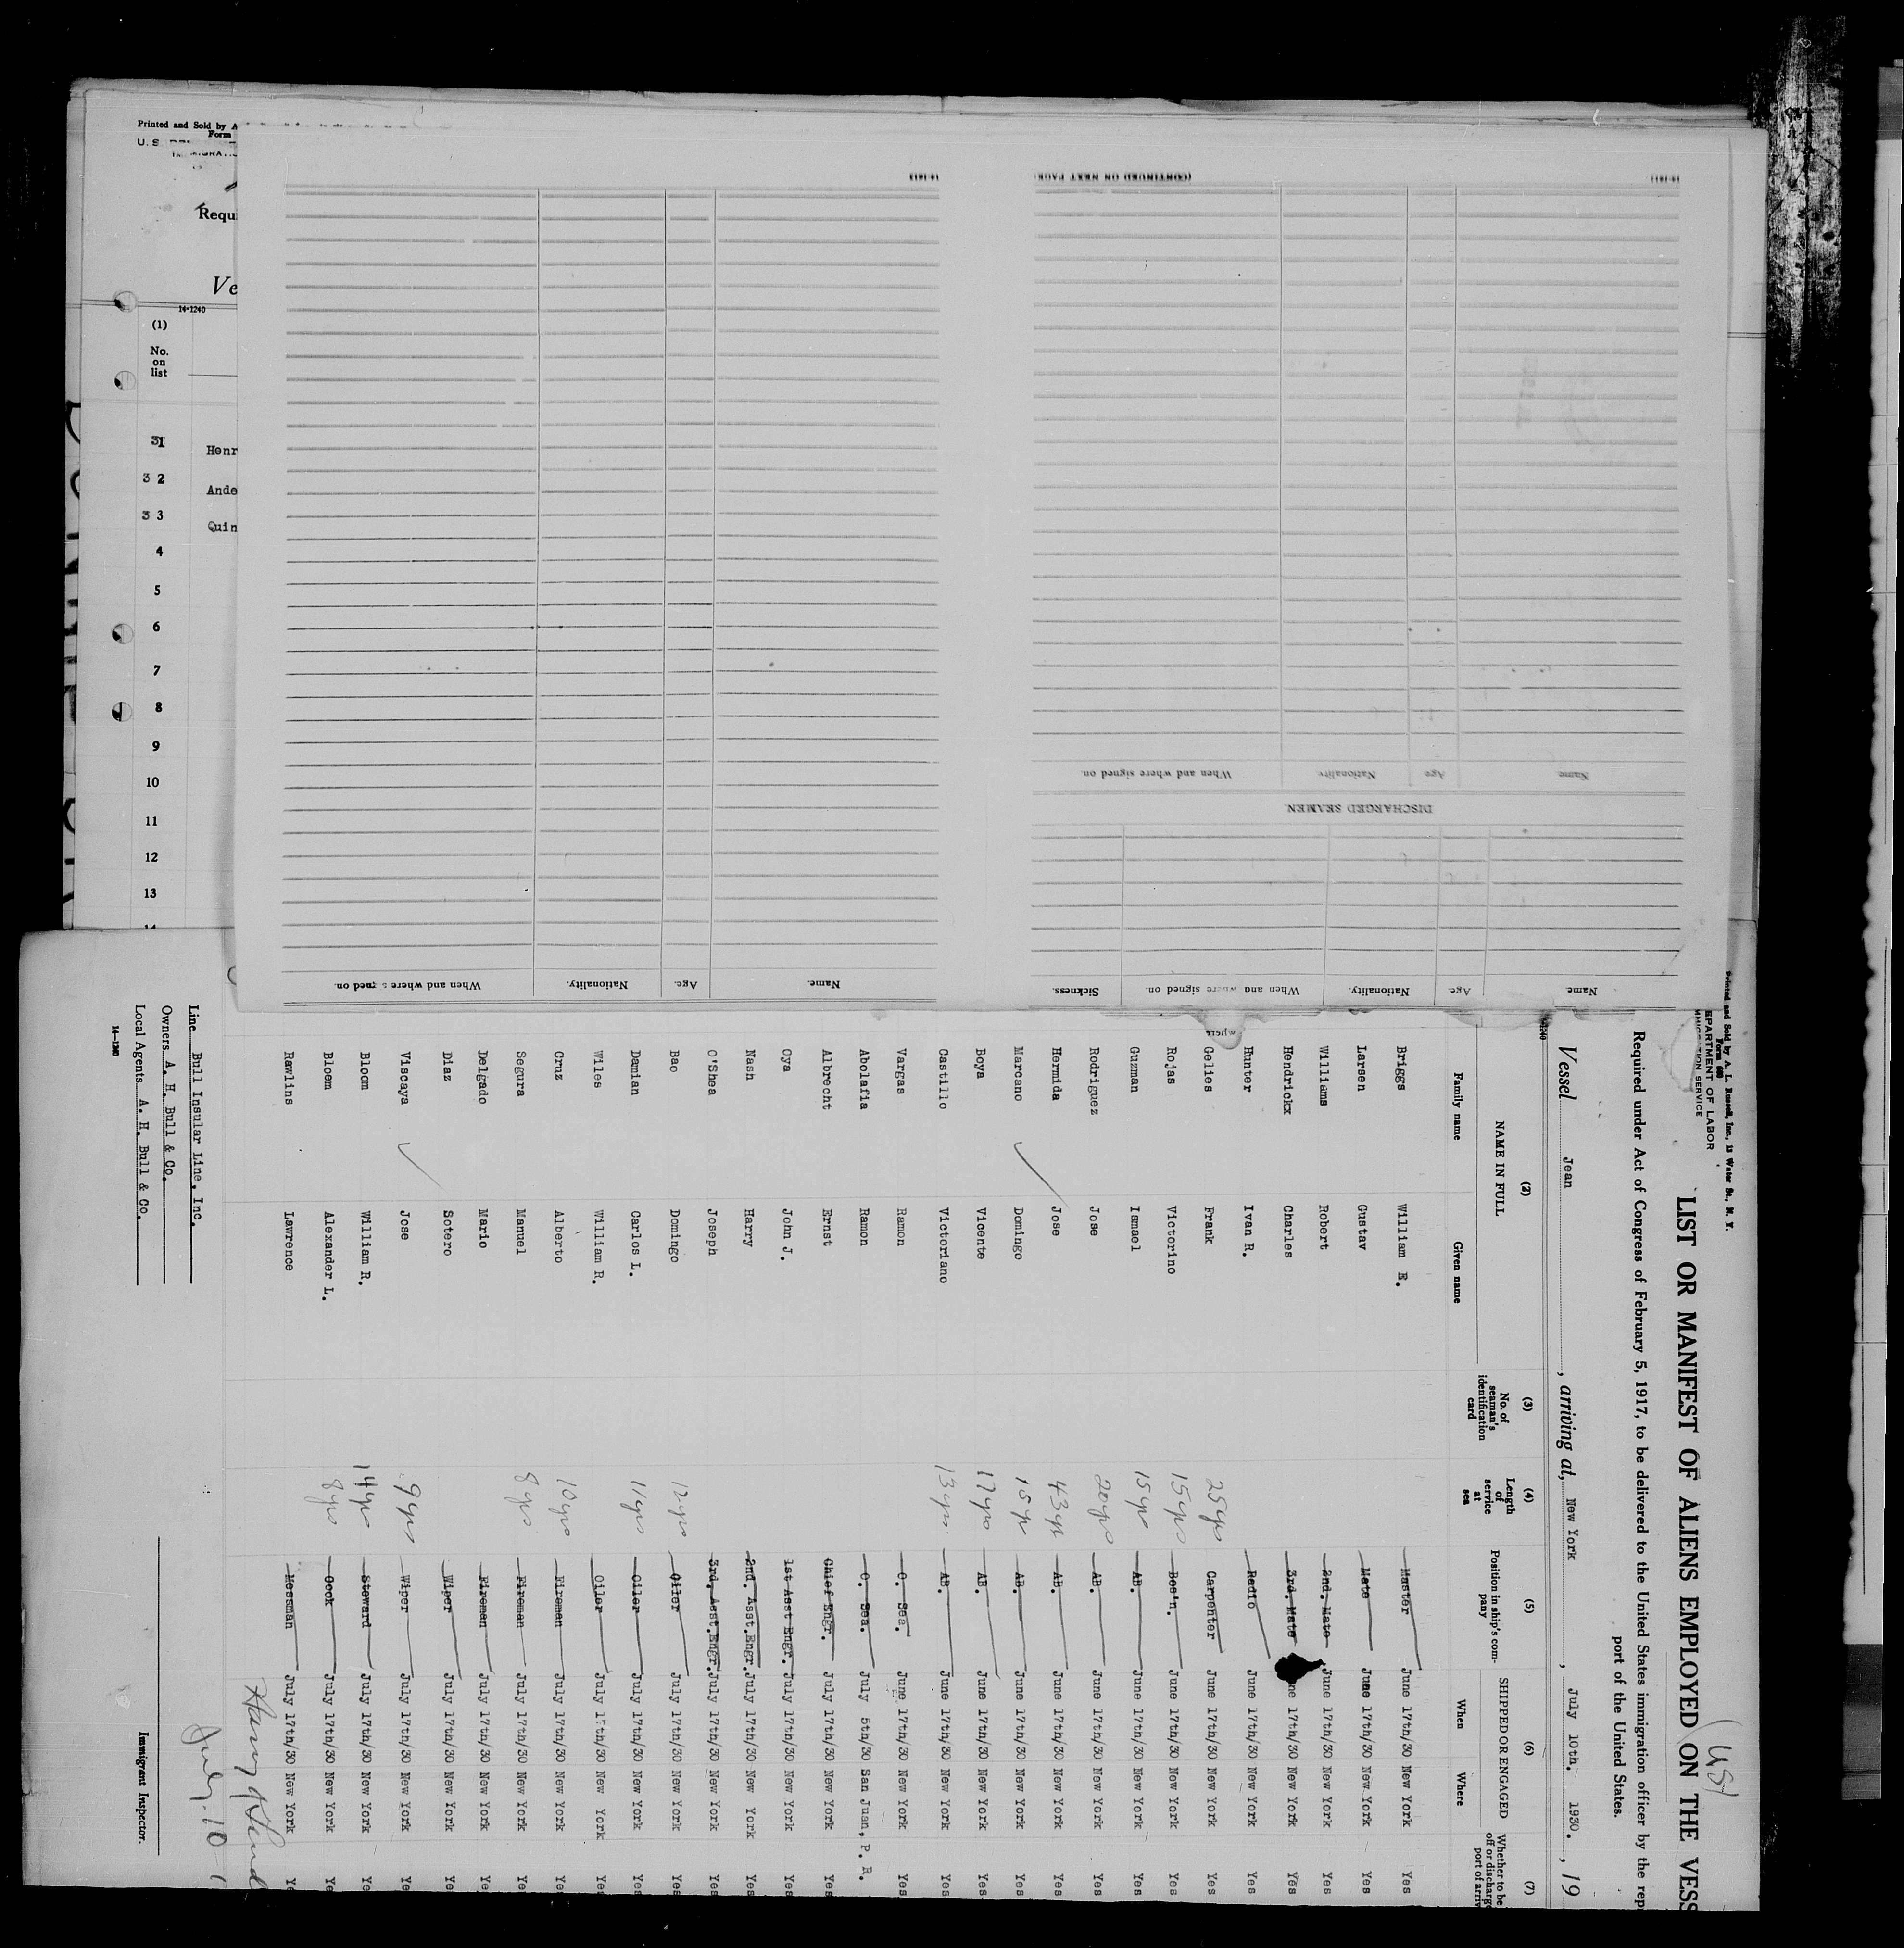 Printed and Sold by A
Form
U. S.
Requi
Ve
14-1240
(1)
No.
on
list
31
Henr
3 2
Ande
3 3
Quin
4
5
6
7
8
9
10
11
12
13
(CONTINUED ON NEXT PAGE
Name
Age
Nationality
When and where signed on.
DISCHARGED SEAMEN.
Name
Age
Nationality.
When and where signed on.
Sickness.
Name.
Age.
Nationality.
When and where signed on.
Printed and Sold by A. L. Russell, Inc., 13 Water St., N. Y.
Form 680
EPARTMENT OF LABOR
IMMIGRATION SERVICE
(USA)
LIST OR MANIFEST OF ALIENS EMPLOYED ON THE VESS
Required under Act of Congress of February 5, 1917, to be delivered to the United States immigration officer by the rep
port of the United States.
Vessel Jean , arriving at, New York , July 10th. 1930. , 19
(2) (3) (4) (5) (6) (7)
NAME IN FULL
Family name Given name
No. of seaman's identification card
Length of service at sea
Position in ship's company
SHIPPED OR ENGAGED
When Where
Whether to be
off or discharge
port of arriv
Briggs William E. Master June 17th/30 New York Yes
Larsen Gustav Mate June 17th/30 New York Yes
Williams Robert 2nd. Mate June 17th/30 New York Yes
Hendrickx Charles 3rd. Mate ne 17th/30 New York Yes
Hunter Ivan R. Radio June 17th/30 New York Yes
Gelies Frank 25 yrs Carpenter June 17th/30 New York Yes
Rojas Victorino 15 yrs Bos'n. June 17th/30 New York Yes
Guzman Ismael 15 yrs AB. June 17th/30 New York Yes
Rodriguez Jose 20 yrs AB. June 17th/30 New York Yes
Hermida Jose 43 yr AB. June 17th/30 New York Yes
Marcano Domingo 15 yr AB. June 17th/30 New York Yes
Boya Vicente 17 yrs AB. June 17th/30 New York Yes
Castillo Victoriano 13 yrs. AB. June 17th/30 New York Yes
Vargas Ramon O. Sea. June 17th/30 New York Yes
Abolafia Ramon O. Sea. July 5th/30 San Juan, P. R.
Albrecht Ernst Chief Engr. July 17th/30 New York Yes
Oya John J. 1st Asst Engr. July 17th/30 New York Yes
Nash Harry 2nd. Asst.Engr. July 17th/30 New York Yes
O'Shea Joseph 3rd. Asst.Engr. July 17th/30 New York Yes
Bao Domingo 12 yrs Oiler July 17th/30 New York Yes
Damian Carlos L. 11 yrs Oiler July 17th/30 New York Yes
Wiles William R. Oiler July 17th/30 New York Yes
Cruz Alberto 10 yrs Fireman July 17th/30 New York Ye
Segura Manuel 8 yrs Fireman July 17th/30 New York Ye
Delgado Mario Fireman July 17th/30 New York Ye
Diaz Sotero Wiper July 17th/30 New York Ye
Viscaya Jose 9 yrs Wiper July 17th/30 New York Ye
Bloom William R. 14 yrs Steward July 17th/30 New York Ye
Bloem Alexander L. 8 yrs Cook July 17th/30 New York Ye
Rawlins Lawrence Messman July 17th/30 New York Ye
Line Bull Insular Line, Inc.
Owners A. H. Bull & Co.
Local Agents A. H. Bull & Co.
14-1240
July-10
Immigrant Inspector.